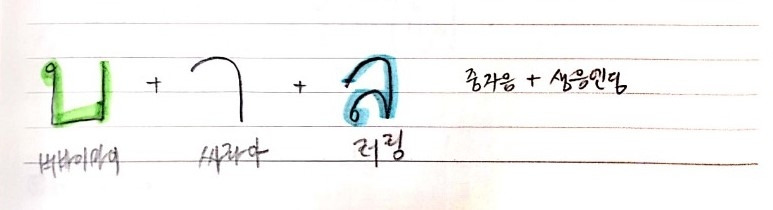 บ + า + ล 중자음 + 생음인딩
버바이마이 싸라아 러링